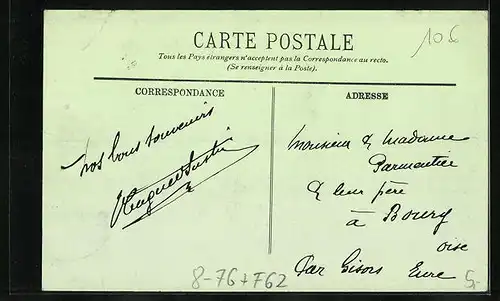 CARTE POSTALE
Tous les Pays étrangers n'acceptent pas la Correspondance au recto.
(Se renseigner à la Poste).
10€
CORRESPONDANCE
ADRESSE
nos bons souvenirs
Monsieur & Madame
Parmentier
& leur père
à Boury
oise
Par Gisors Eure
8-76+F62
5,-